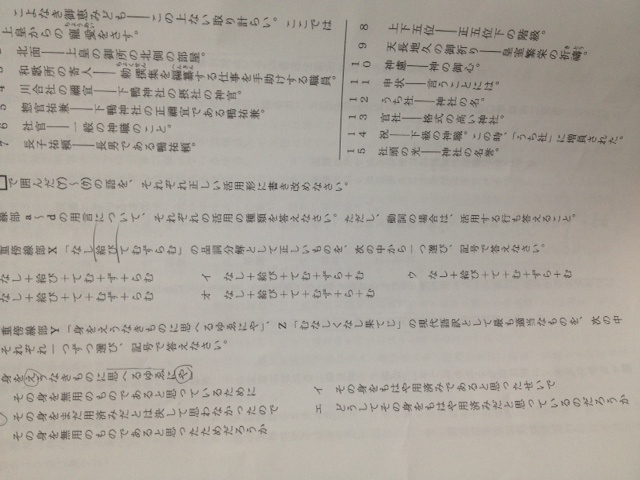 こよなき御恵みども――この上ない取り計らい。ここでは
上皇からの寵愛をさす。
北面――上皇の御所の北側の部屋。
和歌所の寄人――勅撰集を編纂する仕事を手助けする職員。
4 川合社の禰宜――下鴨神社の摂社の神官。
5 惣官祐兼――下鴨神社の正禰宜である鴨祐兼。
6 社官――一般の神職のこと。
7 長子祐頼――長男である鴨祐頼。
8 上下五位――正五位下の階級。
9 天長地久の御祈り――皇室繁栄の祈禱。
10 神慮――神の御心。
11 申状――言うことには。
12 うち社――神社の名。
13 官社――格式の高い神社。
14 祝――下級の神職。この時、「うち社」に増員された。
15 社頭の光――神社の名誉。
で囲んだ(ア)～(ウ)の語を、それぞれ正しい活用形に書き改めなさい。
線部a～dの用言について、それぞれの活用の種類を答えなさい。ただし、動詞の場合は、活用する行も答えること。
重傍線部X「なし結びてむずらむ」の品詞分解として正しいものを、次の中から一つ選び、記号で答えなさい。
なし＋結び＋
イ なし＋結び＋
ウ なし＋結び＋
なし＋結び＋
オ なし＋結び＋
重傍線部Y「身をえうなきものに思へるゆゑにや」、Z「むなしくなし果てじ」の現代語訳として最も適当なものを、次の中
それぞれ一つずつ選び、記号で答えなさい。
身をえうなきものに思へるゆゑにや
その身を無用のものであると思っているために
イ その身をもはや用済みであると思ったせいで
その身をまだ用済みだとは決して思わなかったので
エ どうしてその身をもはや用済みだと思っているのだろうか
その身を無用のものであると思ったためだろうか